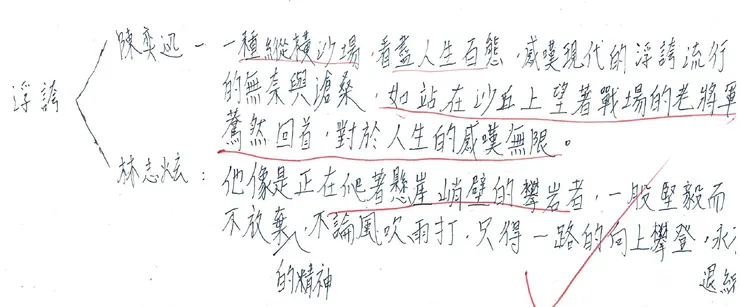 陳奕迅 - 一種縱橫沙場,看盡人生百態,感嘆現代的浮誇流行
浮誇
的無奈與滄桑,如站在沙丘上望著戰場的老將軍
驀然回首,對於人生的感嘆無限。
林志炫:他像是正在爬著懸崖峭壁的攀岩者,一股堅毅而
不放棄,不論風吹雨打,只得一路的向上攀登,永不
的精神
退縮